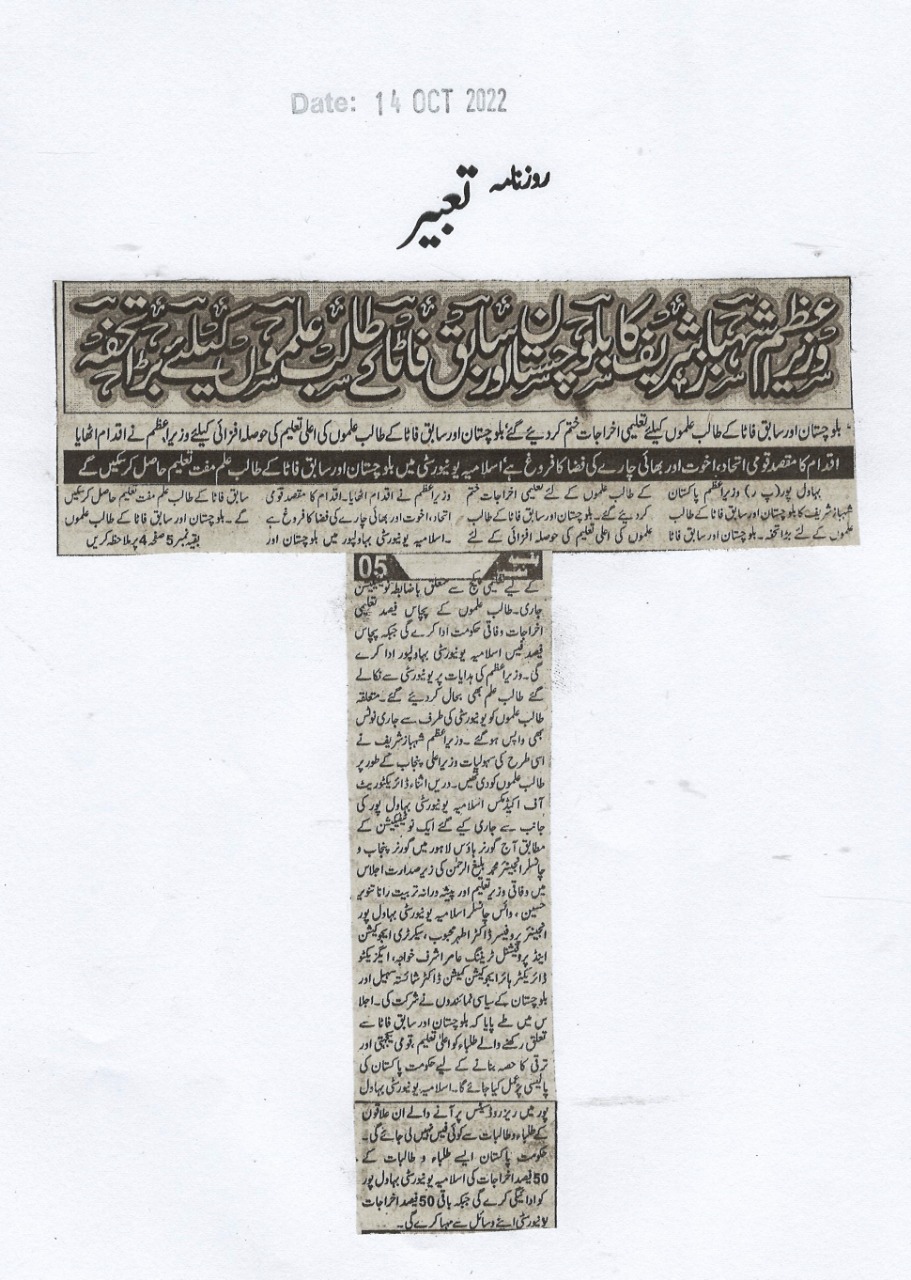 Date: 14 OCT 2022
روزنامہ تعبیر
وزیراعظم شہباز شریف کا بلوچستان اور سابق فاٹا کے طالب علموں کیلئے بڑا تحفہ
بلوچستان اور سابق فاٹا کے طالب علموں کیلئے تعلیمی اخراجات ختم کر دیئے گئے، بلوچستان اور سابق فاٹا کے طالب علموں کی اعلیٰ تعلیم کی حوصلہ افزائی کیلئے وزیراعظم نے اقدام اٹھایا
اقدام کا مقصد قومی اتحاد، اخوت اور بھائی چارے کی فضا کا فروغ ہے، اسلامیہ یونیورسٹی میں بلوچستان اور سابق فاٹا کے طالب علم مفت تعلیم حاصل کر سکیں گے
بہاول پور (پ ر) وزیراعظم پاکستان
شہباز شریف کا بلوچستان اور سابق فاٹا کے طالب
علموں کے لئے بڑا تحفہ۔ بلوچستان اور سابق فاٹا
کے طالب علموں کے لئے تعلیمی اخراجات ختم
کر دیئے گئے۔ بلوچستان اور سابق فاٹا کے طالب
علموں کی اعلیٰ تعلیم کی حوصلہ افزائی کے لئے
وزیراعظم نے اقدام اٹھایا۔ اقدام کا مقصد قومی
اتحاد، اخوت اور بھائی چارے کی فضا کا فروغ ہے
۔ اسلامیہ یونیورسٹی بہاولپور میں بلوچستان اور
سابق فاٹا کے طالب علم مفت تعلیم حاصل کر سکیں
گے۔ بلوچستان اور سابق فاٹا کے طالب علموں
بقیہ نمبر 5 صفحہ 4 پر ملاحظہ کریں
بقیہ نمبر 05
کے لیے تعلیمی پیکج سے متعلق باضابطہ نوٹیفکیشن
جاری۔ طالب علموں کے پچاس فیصد تعلیمی
اخراجات وفاقی حکومت ادا کرے گی جبکہ پچاس
فیصد فیس اسلامیہ یونیورسٹی بہاولپور ادا کرے
گی۔ وزیراعظم کی ہدایات پر یونیورسٹی سے نکالے
گئے طالب علم بھی بحال کر دیئے گئے۔ متعلقہ
طالب علموں کو یونیورسٹی کی طرف سے جاری نوٹس
بھی واپس ہوگئے۔ وزیراعظم شہباز شریف نے
اسی طرح کی سہولیات وزیراعلیٰ پنجاب کے طور پر
طالب علموں کو دی تھیں۔ دریں اثناء ڈائریکٹوریٹ
آف اکیڈمکس اسلامیہ یونیورسٹی بہاول پور کی
جانب سے جاری کیے گئے ایک نوٹیفیکیشن کے
مطابق آج گورنر ہاؤس لاہور میں گورنر پنجاب و
چانسلر انجینئر محمد بلیغ الرحمٰن کی زیرصدارت اجلاس
میں وفاقی وزیر تعلیم اور پیشہ ورانہ تربیت رانا تنویر
حسین، وائس چانسلر اسلامیہ یونیورسٹی بہاول پور
انجینئر پروفیسر ڈاکٹر اطہر محبوب، سیکرٹری ایجوکیشن
اینڈ پروفیشنل ٹریننگ عامر اشرف خواجہ، ایگزیکٹو
ڈائریکٹر ہائر ایجوکیشن کمیشن ڈاکٹر شائستہ سہیل اور
بلوچستان کے سیاسی نمائندوں نے شرکت کی۔ اجلا
س میں طے پایا کہ بلوچستان اور سابق فاٹا سے
تعلق رکھنے والے طلباء کو اعلیٰ تعلیم، قومی یکجہتی اور
ترقی کا حصہ بنانے کے لیے حکومت پاکستان کی
پالیسی پر عمل کیا جائے گا۔ اسلامیہ یونیورسٹی بہاول
پور میں ریزروڈ سیٹس پر آنے والے ان علاقوں
کے طلباء و طالبات سے کوئی فیس نہیں لی جائے گی۔
حکومت پاکستان ایسے طلباء و طالبات کے
50 فیصد اخراجات کی اسلامیہ یونیورسٹی بہاول پور
کو ادائیگی کرے گی جبکہ باقی 50 فیصد اخراجات
یونیورسٹی اپنے وسائل سے مہیا کرے گی۔